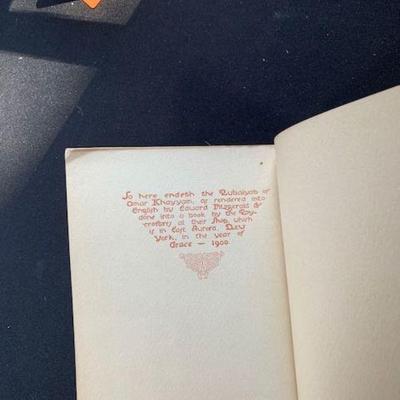 So here endeth the Rubaiyat of
Omar Khayyam, as rendered into
English by Edward Fitzgerald &
done into a book by the Roy-
crofters at their Shop, which
is in East Aurora, New
York, in the year of
Grace — 1900